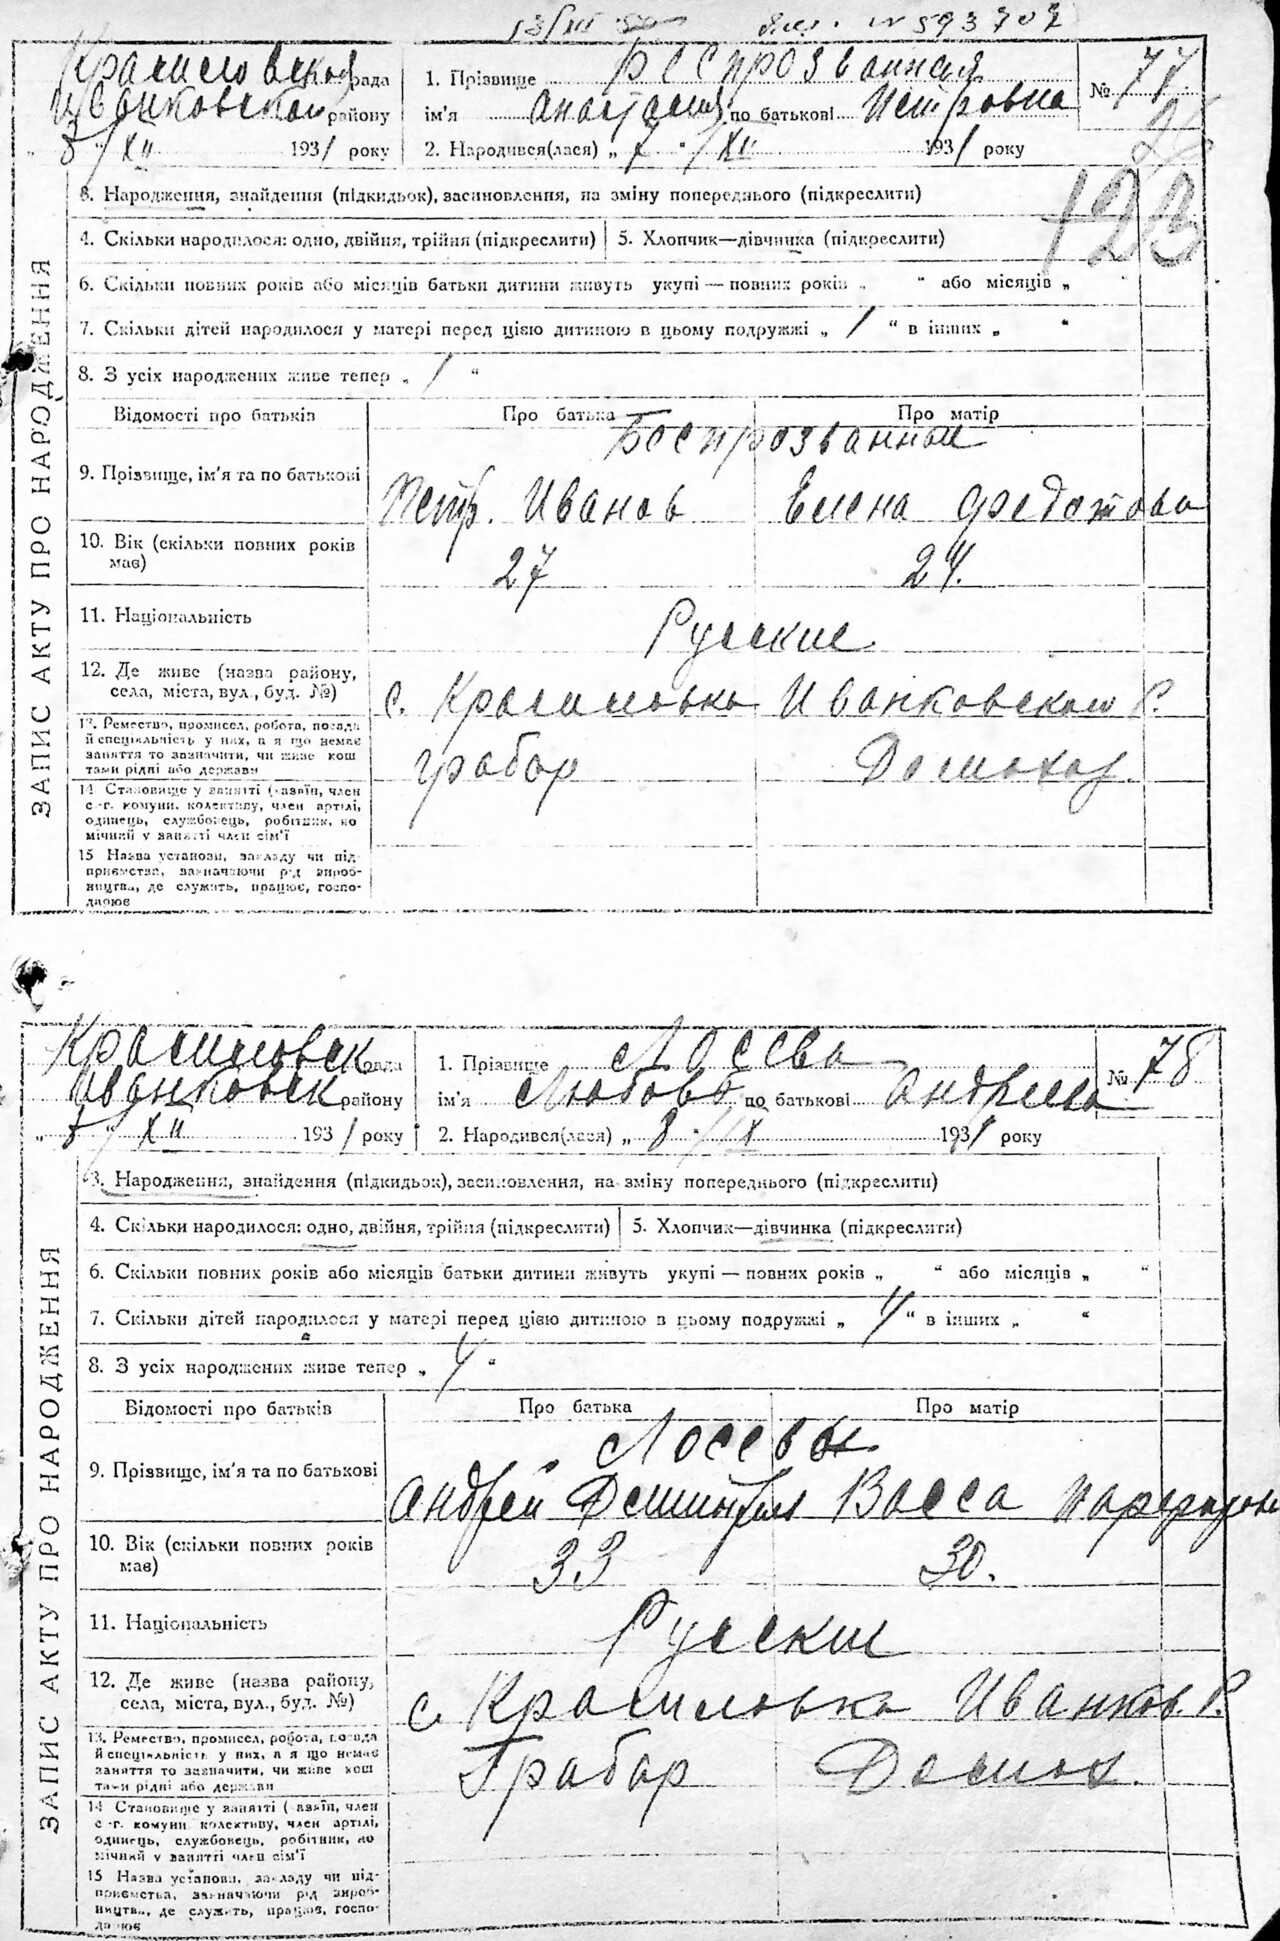 13/III 50 № 593707
Красиловская рада
Иванковского району
" 8 " / XII 1931 року
1. Прізвище Беспрозванная
ім'я Анастасия по батькові Петровна
2. Народився(лася) „ 7 " / XII 1931 року
№ 77
26
123
ЗАПИС АКТУ ПРО НАРОДЖЕННЯ
3. Народження, знайдення (підкидьок), засиновлення, на зміну попереднього (підкреслити)
4. Скільки народилося: одно, двійня, трійня (підкреслити) 5. Хлопчик—дівчинка (підкреслити)
6. Скільки повних років або місяців батьки дитини живуть укупі — повних років „ “ або місяців „ “
7. Скільки дітей народилося у матері перед цією дитиною в цьому подружжі „ 1 “ в інших „ “
8. З усіх народжених живе тепер „ 1 “
Відомості про батьків Про батька Про матір
Беспрозванные
9. Прізвище, ім'я та по батькові Петр. Иванов Елена Федотова
10. Вік (скільки повних років має) 27 24.
11. Національність Русские
12. Де живе (назва району, села, міста, вул., буд. №) с. Красиловка Иванковского Р.
13. Ремество, промисел, робота, посада
й спеціяльність у них, а якщо немає
заняття то зазначити, чи живе кош
тами рідні або держави
грабар Домохоз.
14 Становище у занятті (хазяїн, член
с.-г. комуни, колективу, член артілі,
одинець, службовець, робітник, по
мічний у занятті член сім'ї
15 Назва установи, закладу чи під-
приємства, зазначаючи рід вироб-
ництва, де служить, працює, госпо-
дарює
Красиловск рада
Иванковск району
" 8 " / XII 1931 року
1. Прізвище Лосева
ім'я Любовь по батькові Андреева
2. Народився(лася) „ 8 " / IX 1931 року
№ 78
ЗАПИС АКТУ ПРО НАРОДЖЕННЯ
3. Народження, знайдення (підкидьок), засиновлення, на зміну попереднього (підкреслити)
4. Скільки народилося: одно, двійня, трійня (підкреслити) 5. Хлопчик—дівчинка (підкреслити)
6. Скільки повних років або місяців батьки дитини живуть укупі — повних років „ “ або місяців „ “
7. Скільки дітей народилося у матері перед цією дитиною в цьому подружжі „ 4 “ в інших „ “
8. З усіх народжених живе тепер „ 4 “
Відомості про батьків Про батька Про матір
Лосевы
9. Прізвище, ім'я та по батькові Андрей Васса
10. Вік (скільки повних років має) 33 30.
11. Національність Русские
12. Де живе (назва району, села, міста, вул., буд. №) с. Красиловка Иванков. Р.
13. Ремество, промисел, робота, посада
й спеціяльність у них, а якщо немає
заняття то зазначити, чи живе кош
тами рідні або держави
Грабар Домох.
14 Становище у занятті (хазяїн, член
с.-г. комуни колективу, член артілі,
одинець, службовець, робітник, по
мічний у занятті член сім'ї
15 Назва установи, закладу чи під-
приємства, зазначаючи рід вироб-
ництва, де служить, працює, госпо-
дарює